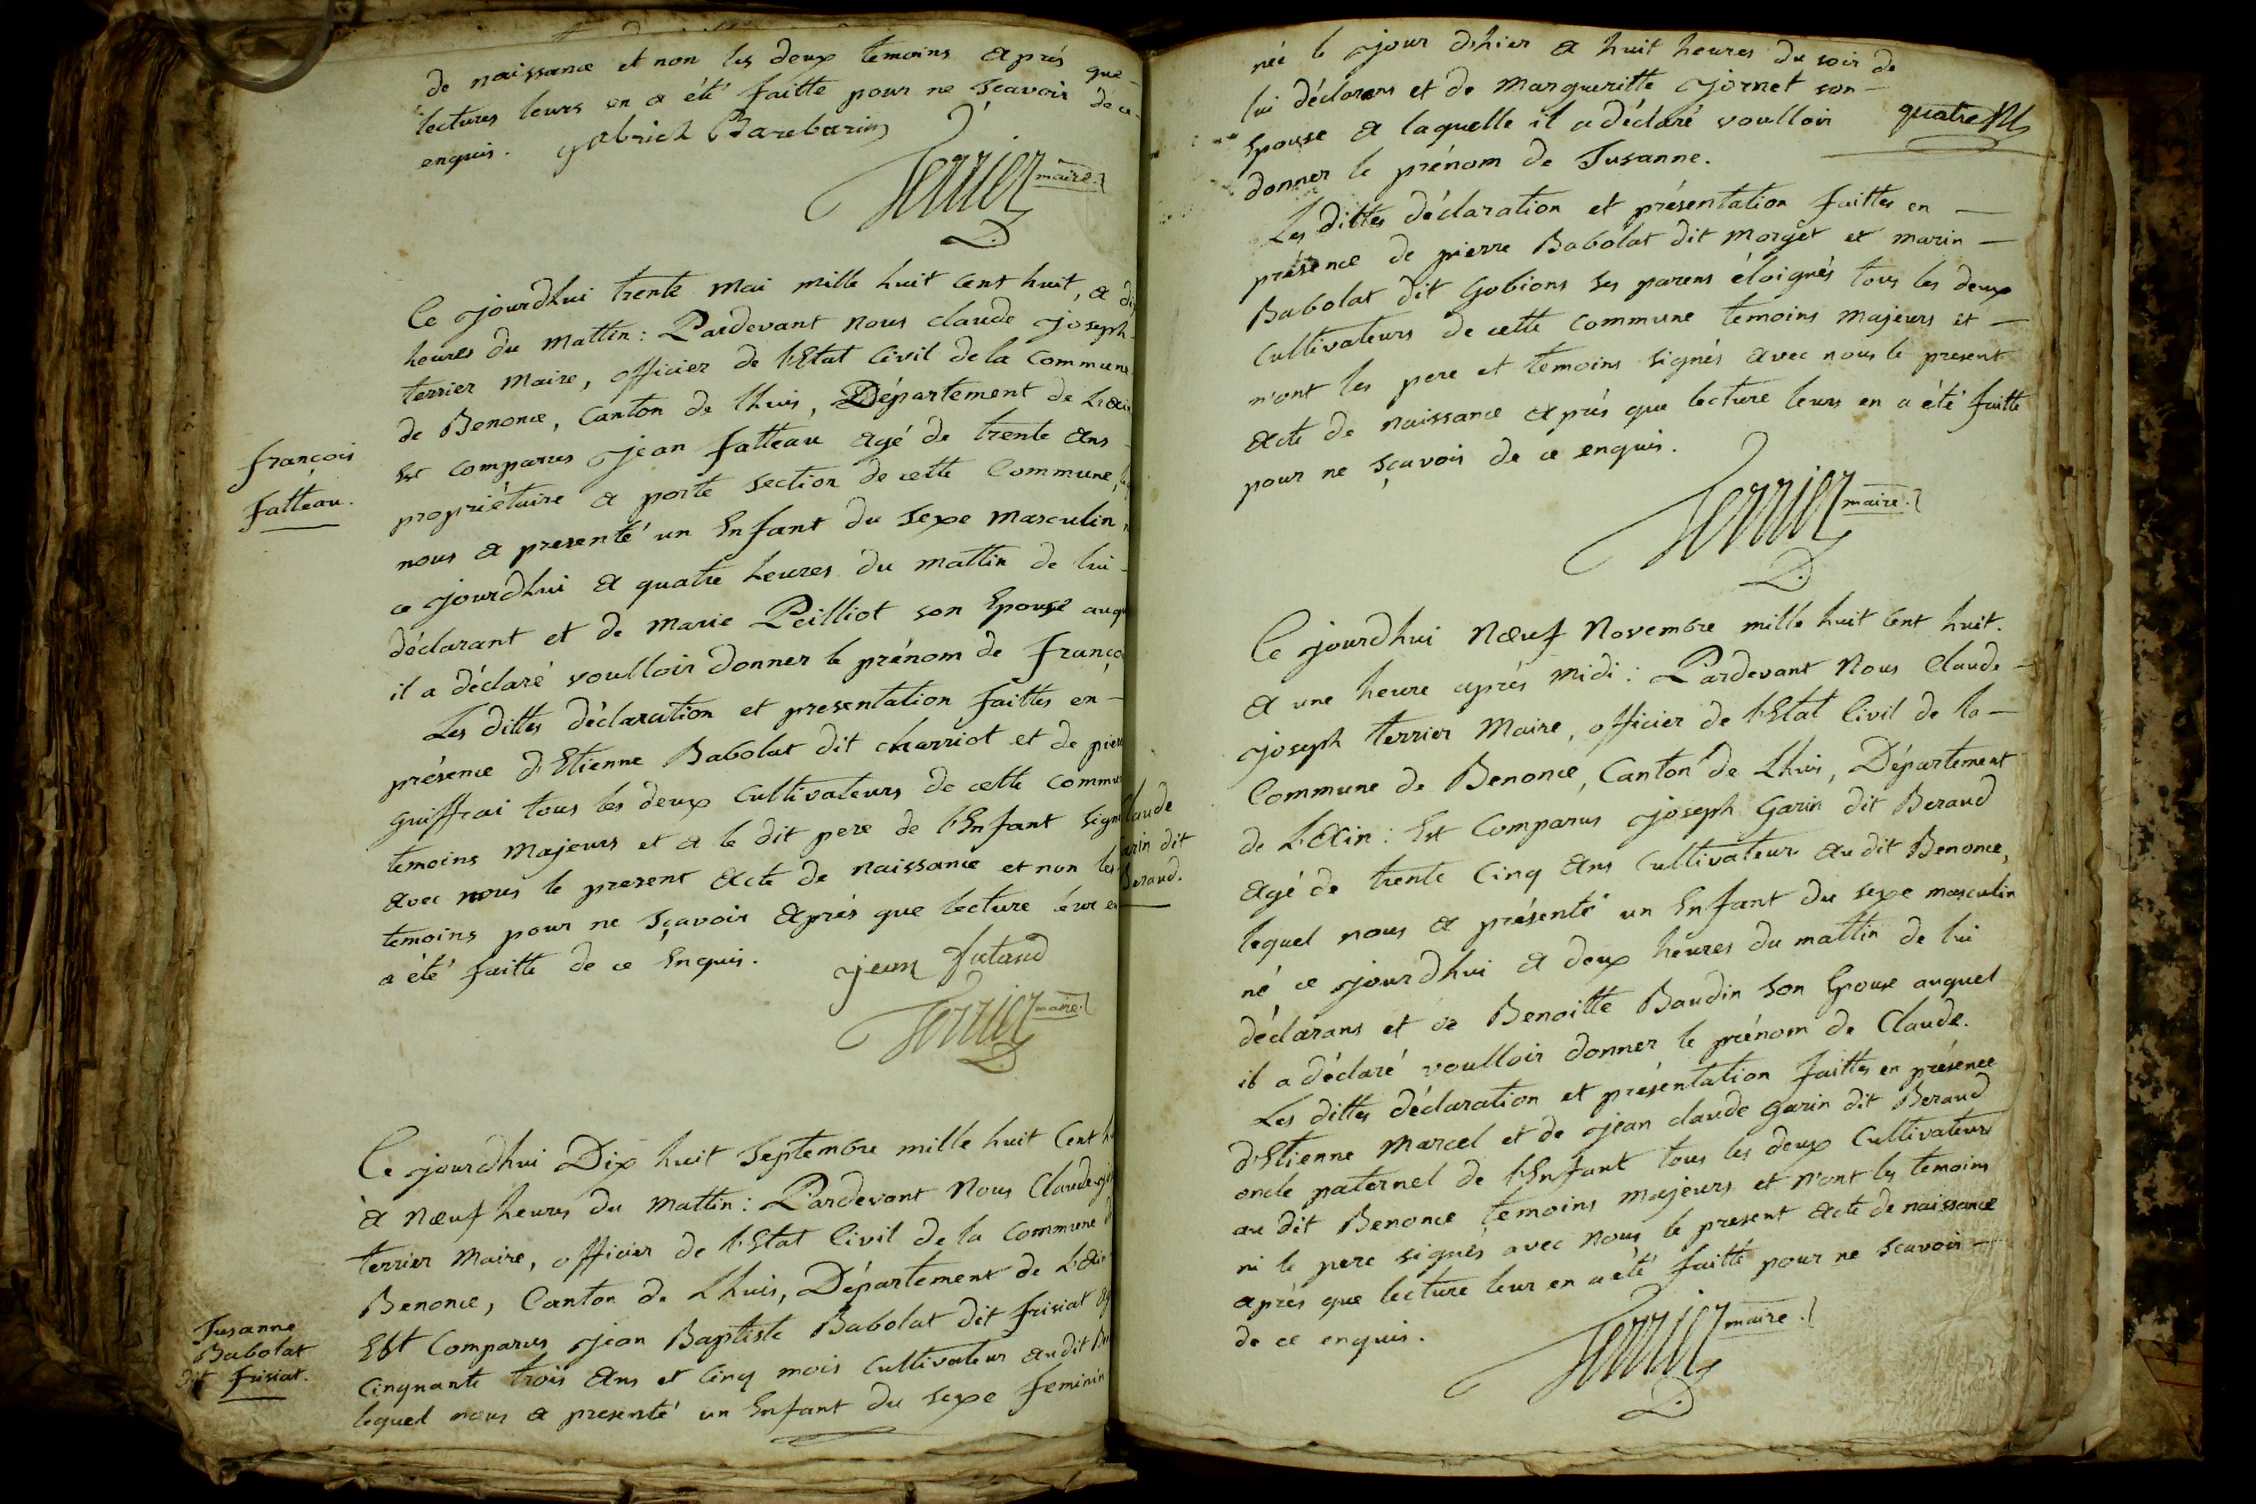 de naissance et non les deux temoins après que
lectures leurs en a été faitte pour ne sçavoir de ce
enquis. Barebarin
Terrier maire.
Ce jourdhui trente Mai mille huit cent huit, a
heures du mattin : Pardevant nous claude joseph
terrier Maire, officier de l'Etat Civil de la Commune
de Benonce, Canton de Lhuis, Département de L'Ain
Est comparus jean fatteau agé de trente ans
françois
fatteau.
propriétaire a porte section de cette Commune,
nous a presenté un Enfant du sexe masculin
ce jourdhui a quatre heures du mattin de lui
déclarant et de Marie Peilliot son Epouse
il a déclaré voulloir donner le prénom de
Les dittes déclaration et presentation faittes en
présence d'Etienne Babolat dit charriot et de
guiffrai tous les deux Cultivateurs de cette
temoins Majeurs et a le dit pere de l'Enfant
avec nous le present acte de naissance et non les
temoins pour ne sçavoir après que lecture leur
a été faitte de ce Enquis.
jean fataud
Terrier maire.
Ce jourdhui Dix huit Septembre mille huit Cent
à Nœuf heures du Mattin : Pardevant Nous
terrier Maire, officier de l'Etat Civil de la Commune
Benonce, Canton de Lhuis, Département de L'Ain
Susanne
Babolat
dit frisiat.
Est Comparus jean Baptiste Babolat dit frisiat
Cinquante trois ans et Cinq mois Cultivateur audit
lequel nous a presenté un Enfant du sexe feminin
née le jour d'hier a huit heures du soir de
lui déclarans et de Margueritte jornet son
Epouse a laquelle il a déclaré voulloir
quatre
donner le prénom de Susanne.
Les dittes déclaration et présentation faittes en
présence de pierre Babolat dit morget et marin
Babolat dit Gobions ses parens éloignés tous les deux
Cultivateurs de cette Commune temoins majeurs et
n'ont les pere et temoins signés avec nous le present
acte de naissance après que lecture leurs en a été faitte
pour ne sçavoir de ce enquis.
Terrier maire.
Ce jourdhui Nœuf Novembre mille huit Cent huit.
a une heure après midi : Pardevant Nous Claude
joseph terrier Maire, officier de l'Etat Civil de la
Commune de Benonce, Canton de Lhuis, Département
de L'Ain : Est Comparus joseph Garin dit Beraud
laude
arin dit
Beraud.
agé de trente Cinq ans Cultivateur audit Benonce,
lequel nous a présenté un Enfant du sexe masculin
né ce jourdhui a deux heures du mattin de lui
déclarans et de Benoitte Baudin son Epouse auquel
il a déclaré voulloir donner le prénom de Claude.
Les dittes déclaration et présentation faittes en présence
d'Etienne Marcel et de jean claude garin dit Beraud
oncle paternel de l'Enfant tous les deux Cultivateurs
au dit Benonce temoins majeurs et n'ont les temoins
ni le pere signés avec Nous le present acte de naissance
après que lecture leur en a été faitte pour ne scavoir
de ce enquis.
Terrier maire.